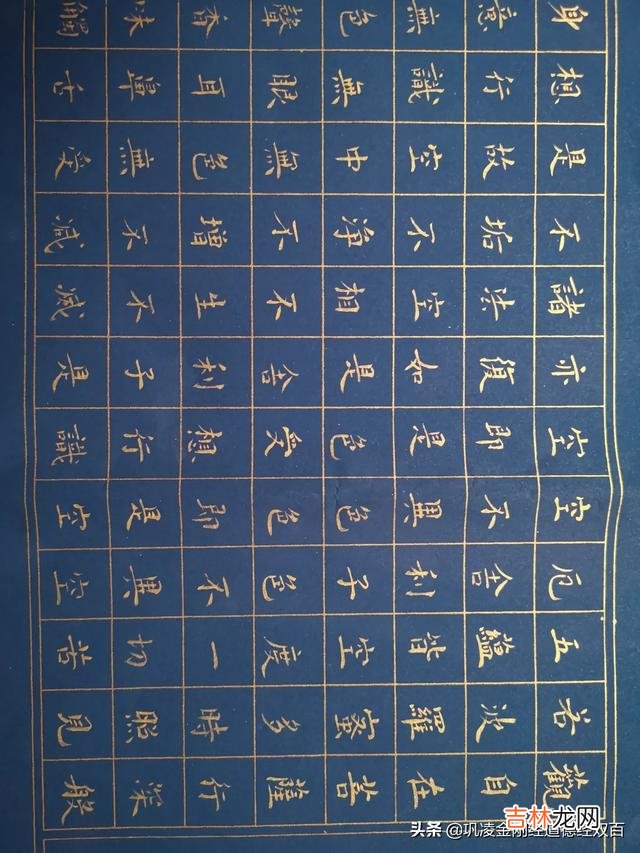 觀自在菩薩行深般
若波羅蜜多時照見
五蘊皆空度一切苦
厄舍利子色不異空
空不異色色即是空
空即是色受想行識
亦復如是舍利子是
諸法空相不生不滅
不垢不淨不增不減
是故空中無色無受
想行識無眼耳鼻舌
身意無色聲香味觸
吉林龙网
头条 @巩凌金刚经道德经双百